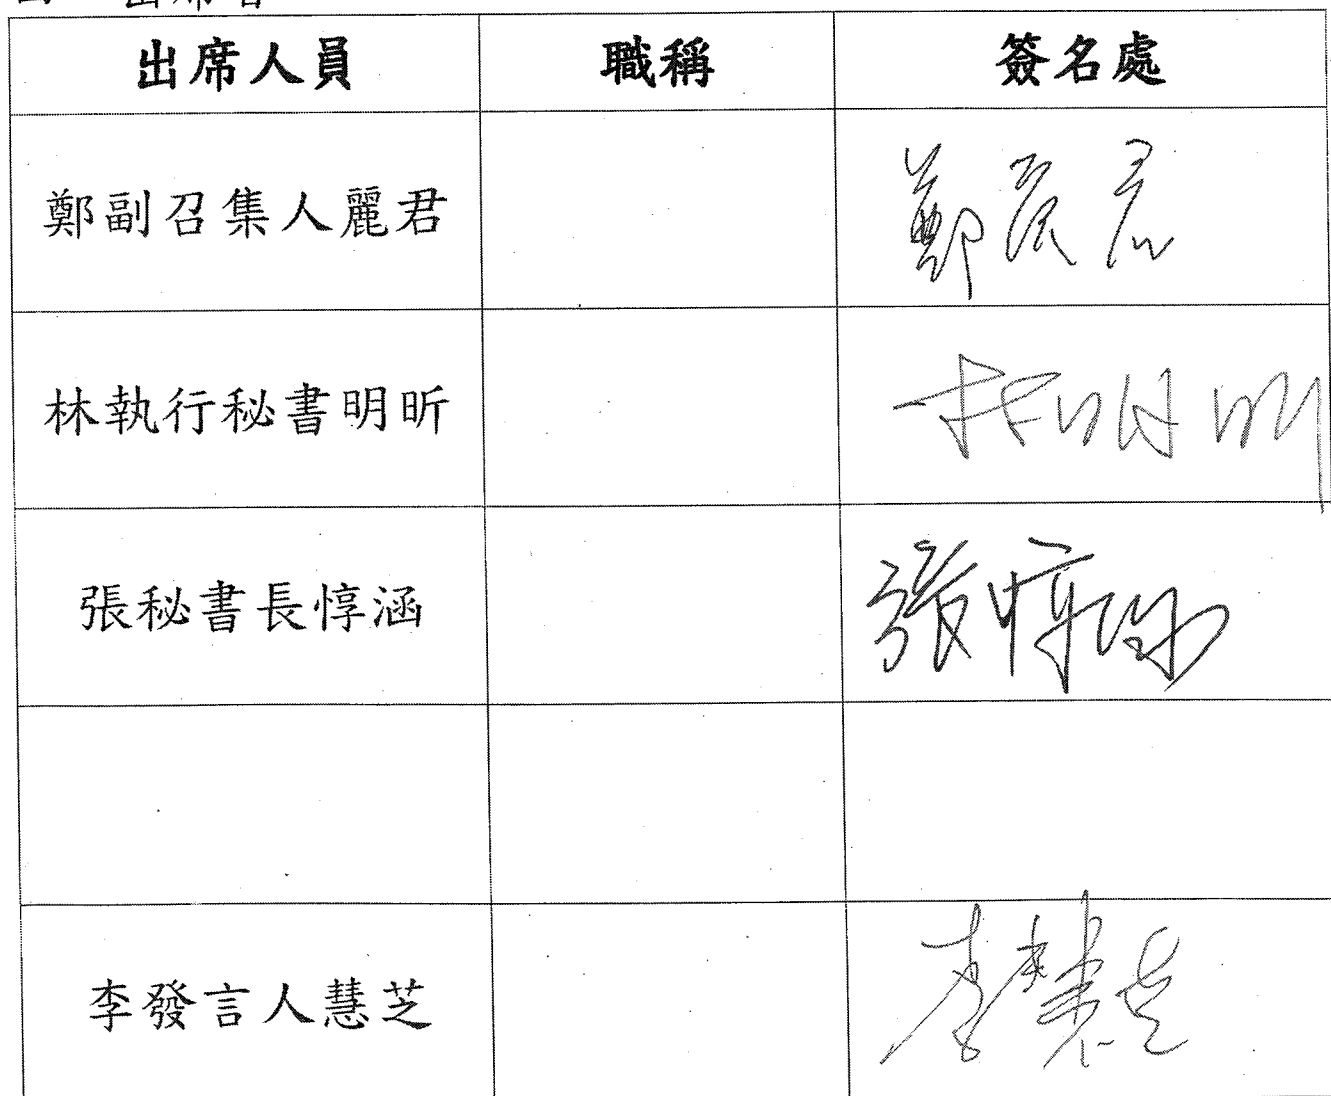 出席者
出席人員 職稱 簽名處
鄭副召集人麗君 鄭麗君
林執行秘書明昕 林明昕
張秘書長惇涵 張惇涵
李發言人慧芝 李慧芝